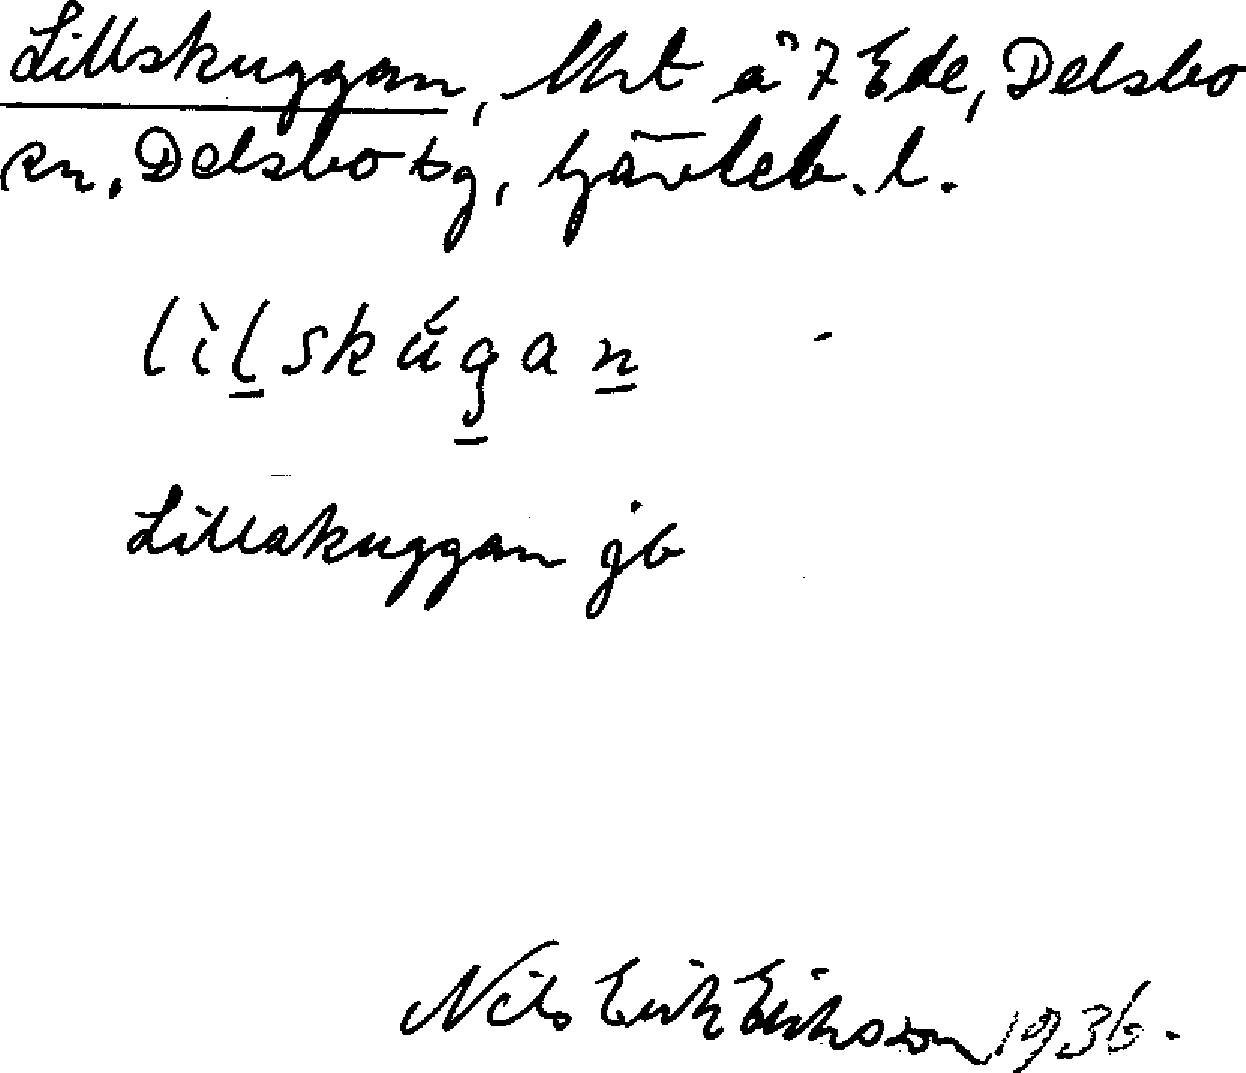 Lillskuggan, lht å 7 Ede, Delsbo
sn, Delsbo tg, Gävleb. l.
lìlskúgan
Lillskuggan jb
Nils Erik Eriksson 1936.